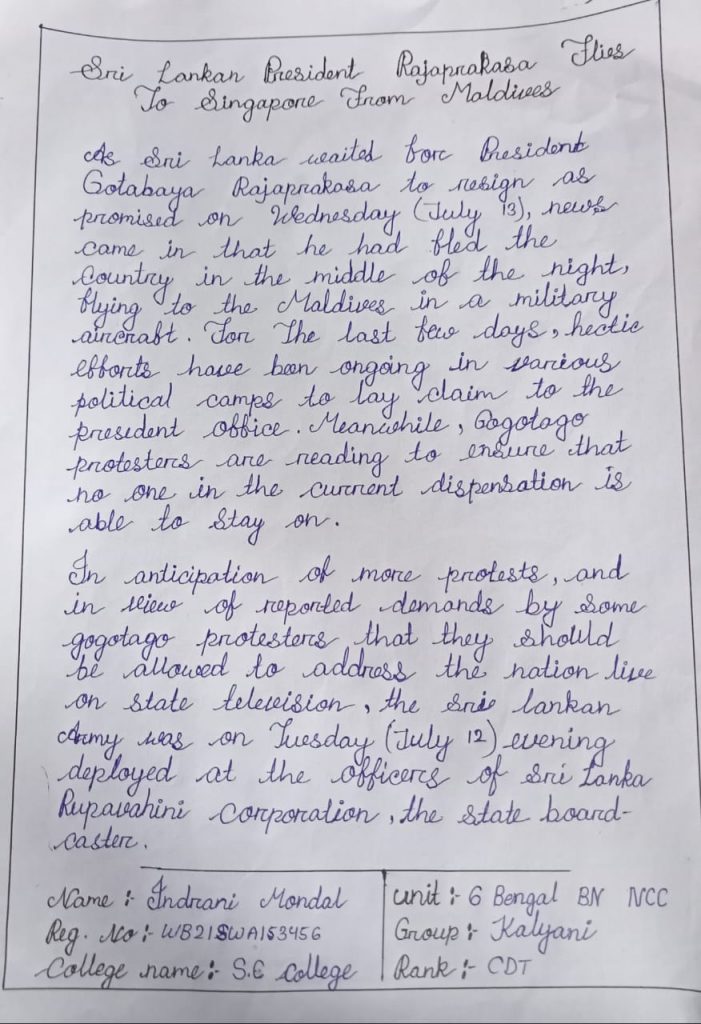 Sri Lankan President Rajaprakasa Flies
To Singapore From Maldives
As Sri Lanka waited for President
Gotabaya Rajaprakasa to resign as
promised on Wednesday (July 13), news
came in that he had fled the
Country in the middle of the night,
flying to the Maldives in a military
aircraft. For The last few days, hectic
efforts have been ongoing in various
political camps to lay claim to the
president office. Meanwhile, Gogotago
protesters are reading to ensure that
no one in the current dispensation is
able to stay on.
In anticipation of more protests, and
in view of reported demands by some
gogotago protesters that they should
be allowed to address the nation live
on state television, the Sri lankan
Army was on Tuesday (July 12) evening
deployed at the officers of Sri Lanka
Rupavahini Corporation, the state board-
caster.
Name :- Indrani Mondal
Reg. No :- WB21SWA153456
College name :- S.E College
unit :- 6 Bengal BN NCC
Group :- Kalyani
Rank :- CDT